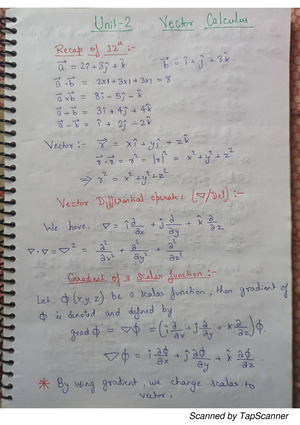 Unit-2 Vector Calculus
Recap of 12th :-
a⃗ = 2î+3ĵ+k̂ b⃗ = î+ĵ+3k̂
a⃗·b⃗ = 2x1+3x1+3x1 = 8
a⃗×b⃗ = 8î-5ĵ-k̂
a⃗+b⃗ = 3î+4ĵ+4k̂
a⃗-b⃗ = î+2ĵ-2k̂
Vector :- r⃗ = xî+yĵ+zk̂
r⃗·r⃗ = r² = |r⃗|² = x²+y²+z²
⇒ r² = x²+y²+z²
Vector Differential operator (∇/Del) :-
We have, ∇ = î ∂/∂x + ĵ ∂/∂y + k̂ ∂/∂z
∇·∇ = ∇² = ∂²/∂x² + ∂²/∂y² + ∂²/∂z²
Gradient of a scalar function :-
Let ϕ(x,y,z) be a scalar function, then gradient of
ϕ is denoted and defined by
grad ϕ = ∇ϕ = (î ∂/∂x + ĵ ∂/∂y + k̂ ∂/∂z) ϕ
∇ϕ = î ∂ϕ/∂x + ĵ ∂ϕ/∂y + k̂ ∂ϕ/∂z
* By using gradient, we change scalar to
vector.
Scanned by TapScanner